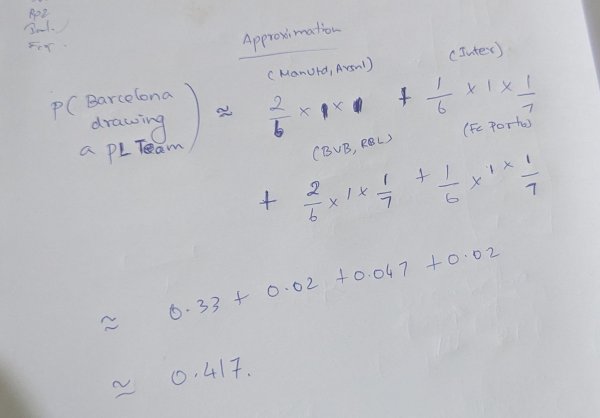 Approximation
(ManUtd, Arsnl) (Inter)
P( Barcelona drawing a PL Team ) ≈ 2/6 × 1 × 1 + 1/6 × 1 × 1/7
(BVB, RBL) (Fc Porto)
+ 2/6 × 1 × 1/7 + 1/6 × 1 × 1/7
≈ 0.33 + 0.02 + 0.047 + 0.02
≈ 0.417.